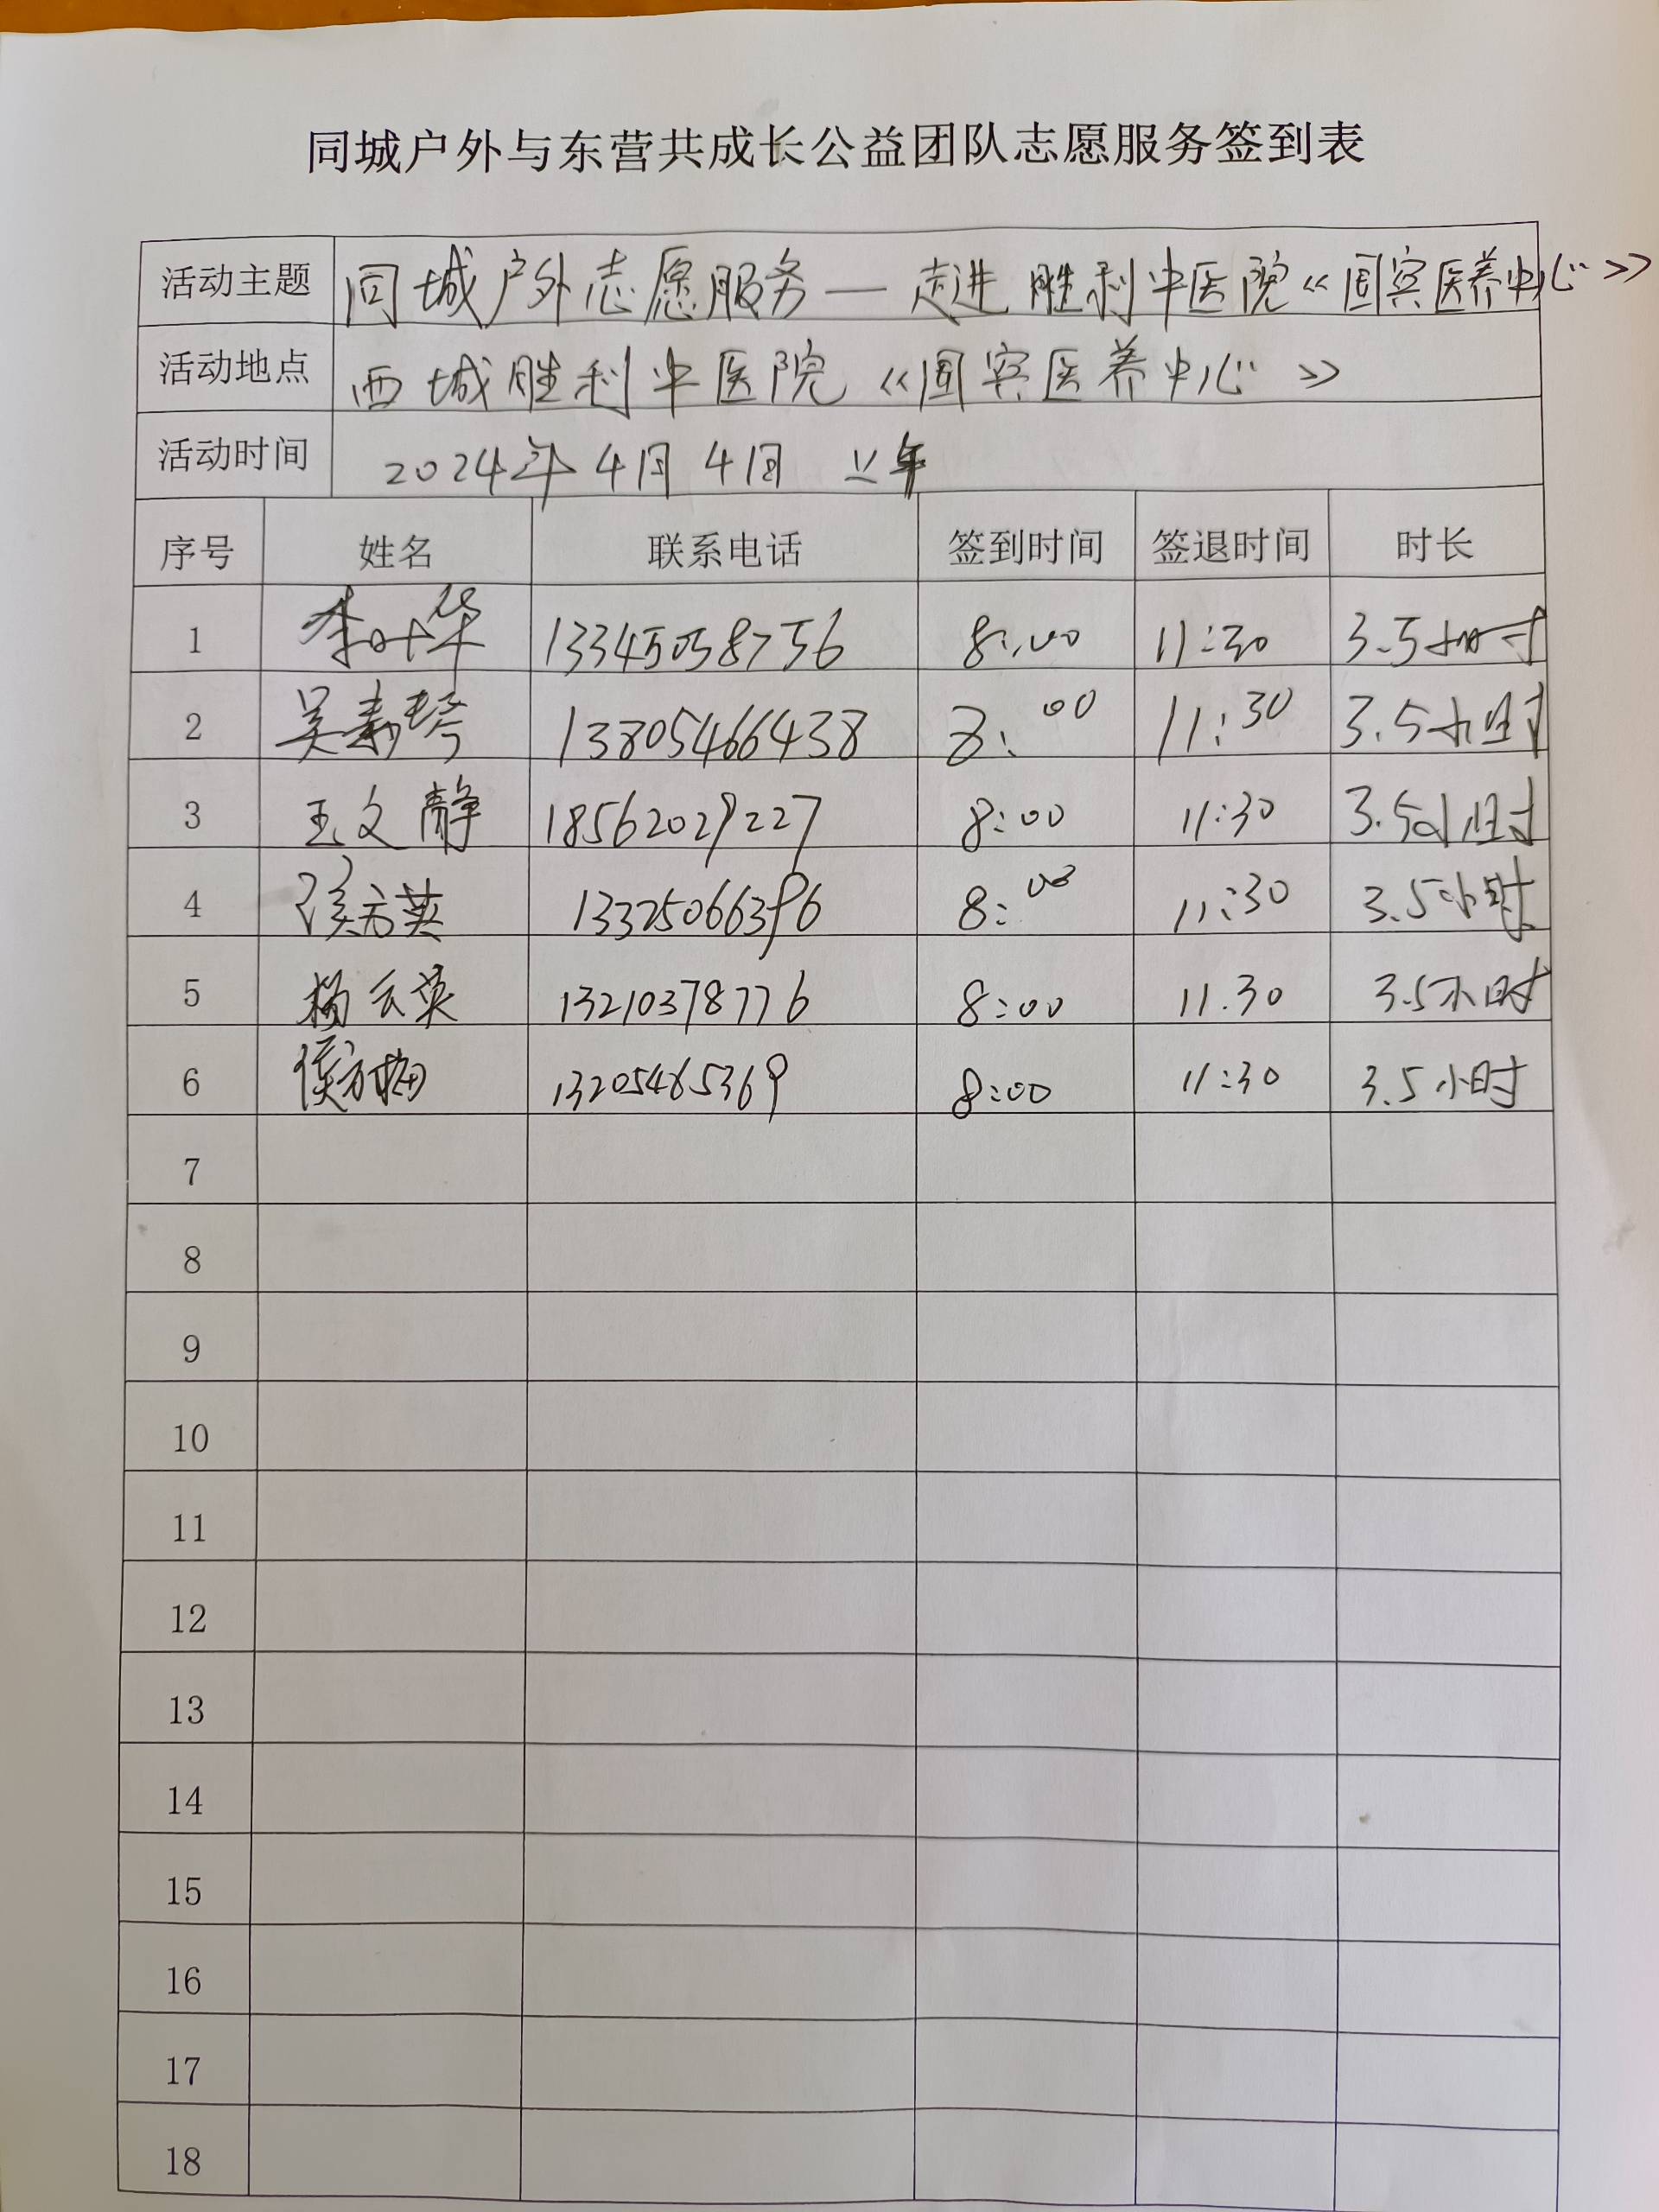 同城户外与东营共成长公益团队志愿服务签到表
活动主题 同城户外志愿服务—走进胜利中医院《国宾医养中心》
活动地点 西城胜利中医院《国宾医养中心》
活动时间 2024年4月4日 上午
序号 姓名 联系电话 签到时间 签退时间 时长
1 李叶华 13345058756 8:00 11:30 3.5小时
2 吴素琴 13805466438 8:00 11:30 3.5小时
3 王文静 18562029227 8:00 11:30 3.5小时
4 侯方英 13325066396 8:00 11:30 3.5小时
5 杨云英 13210378776 8:00 11.30 3.5小时
6 侯方梅 13205465369 8:00 11:30 3.5小时
7
8
9
10
11
12
13
14
15
16
17
18